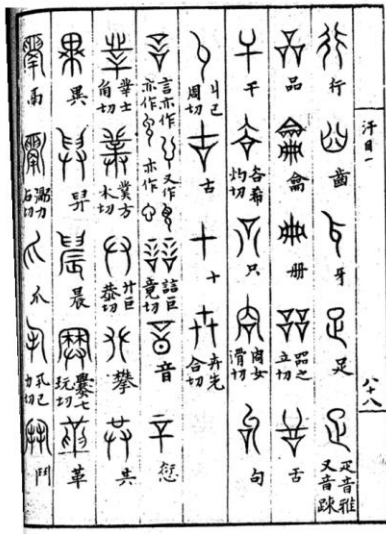 汗目一
八十八
行 齒 牙 足 疋音雅又音疎
品 龠 册 㗊之立切 舌
干 各希灼切 只 㕯女滑切 句
丩己周切 古 十 卉先合切
言亦作 又作 亦作 亦作 誩巨竟切 音 䇂愆
丵士角切 菐方木切 廾巨恭切 攀 共
異 舁 晨 爨七玩切 革
鬲 䰜力石切 爪 丮己力切 鬥